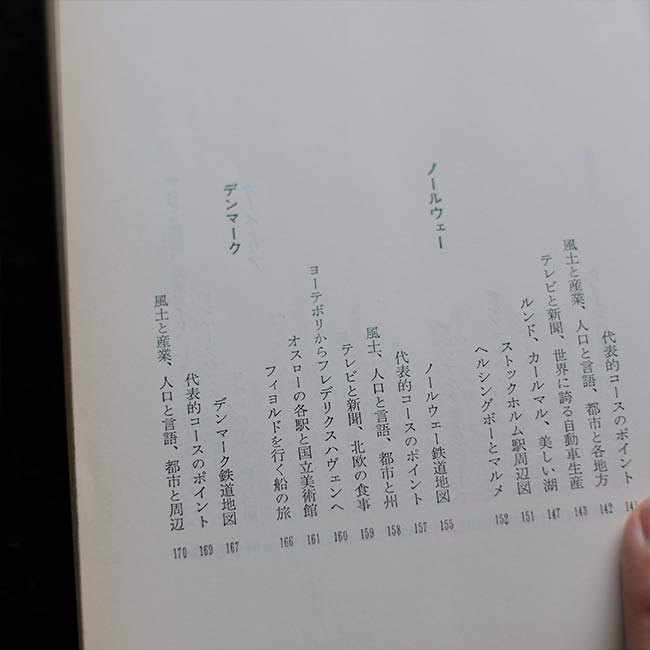 代表的コースのポイント 141
風土と産業、人口と言語、都市と各地方 142
テレビと新聞、世界に誇る自動車生産 143
ルンド、カールマル、美しい湖 147
ストックホルム駅周辺図 151
ヘルシングボーとマルメ 152
ノールウェー
ノールウェー鉄道地図 155
代表的コースのポイント 157
風土、人口と言語、都市と州 158
テレビと新聞、北欧の食事 159
ヨーテボリからフレデリクスハヴェンへ 160
オスローの各駅と国立美術館 161
フィヨルドを行く船の旅 166
デンマーク
デンマーク鉄道地図 167
代表的コースのポイント 169
風土と産業、人口と言語、都市と周辺 170